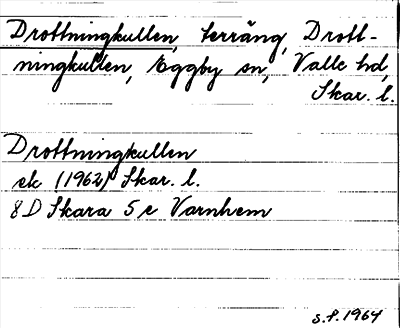 Drottningkullen, terräng, Drott-
ningkullen, Eggby sn, Valle hd,
Skar. l.
Drottningkullen
ek (1962) Skar. l.
8D Skara 5c Varnhem
s.f. 1964